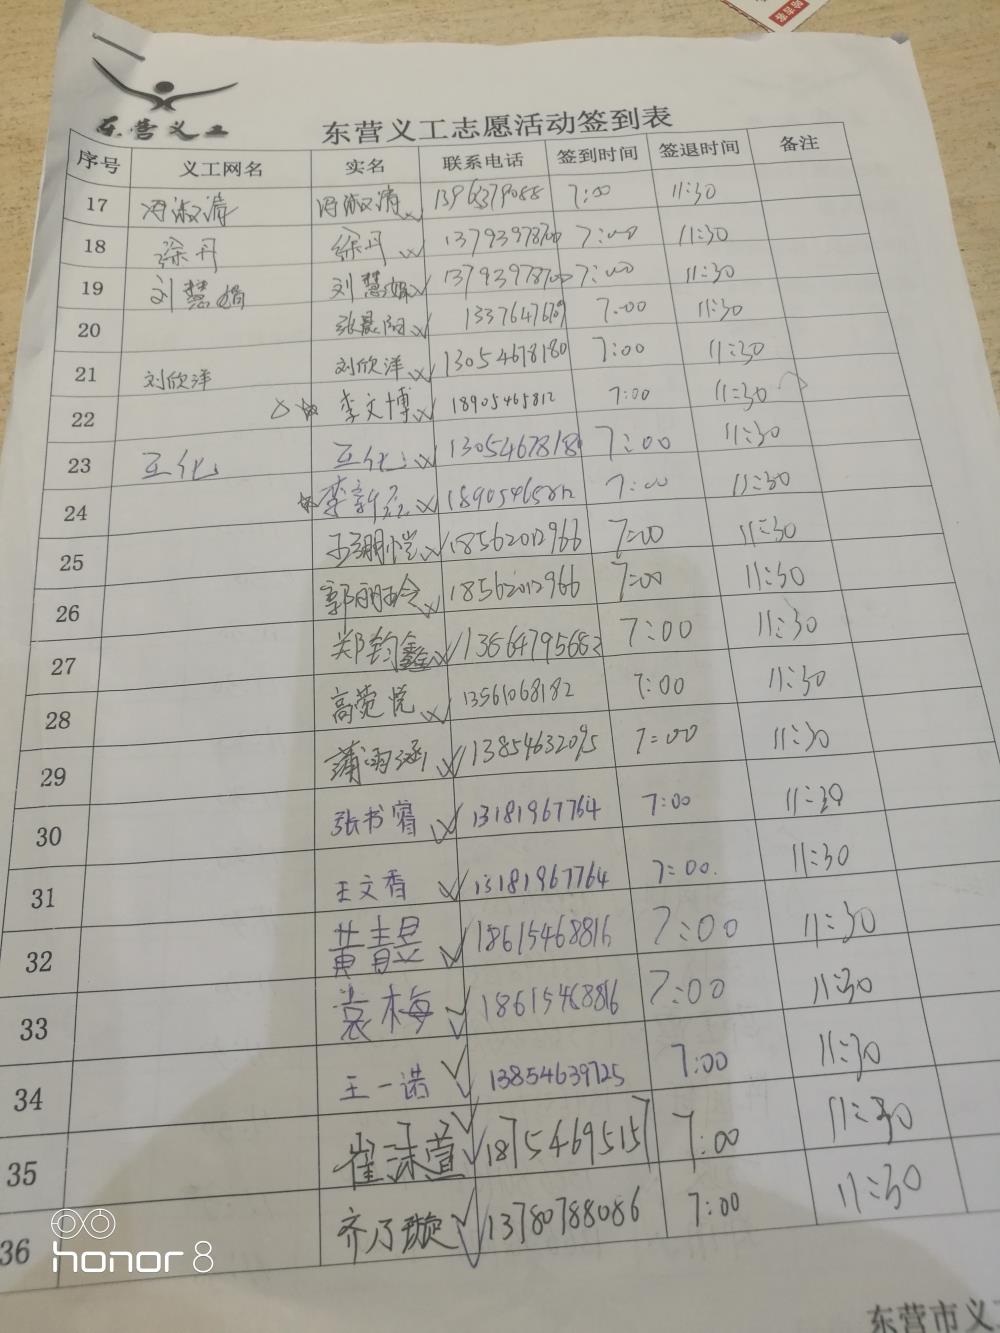 东营义工
东营义工志愿活动签到表
序号 义工网名 实名 联系电话 签到时间 签退时间 备注
17 7:00 11:30
18 徐丹 徐丹 7:00 11:30
19 刘慧娟 刘慧娟 7:00 11:30
20 张晨阳 7:00 11:30
21 刘欣洋 刘欣洋 13054678180 7:00 11:30
22 李文博 18905465812 7:00 11:30
23 7:00 11:30
24 7:00 11:30
25 18562012966 7:00 11:30
26 郭丽玲 18562012966 7:00 11:30
27 郑钧鑫 7:00 11:30
28 高莞悦 13561068182 7:00 11:30
29 蒲雨涵 13854632095 7:00 11:30
30 张书睿 13181967764 7:00 11:30
31 王文香 13181967764 7:00 11:30
32 黄青昱 18615468816 7:00 11:30
33 袁梅 18615468816 7:00 11:30
34 王一诺 13854639725 7:00 11:30
35 崔沫萱 18754695157 7:00 11:30
36 齐乃璇 13780788086 7:00 11:30
honor 8
东营市义工